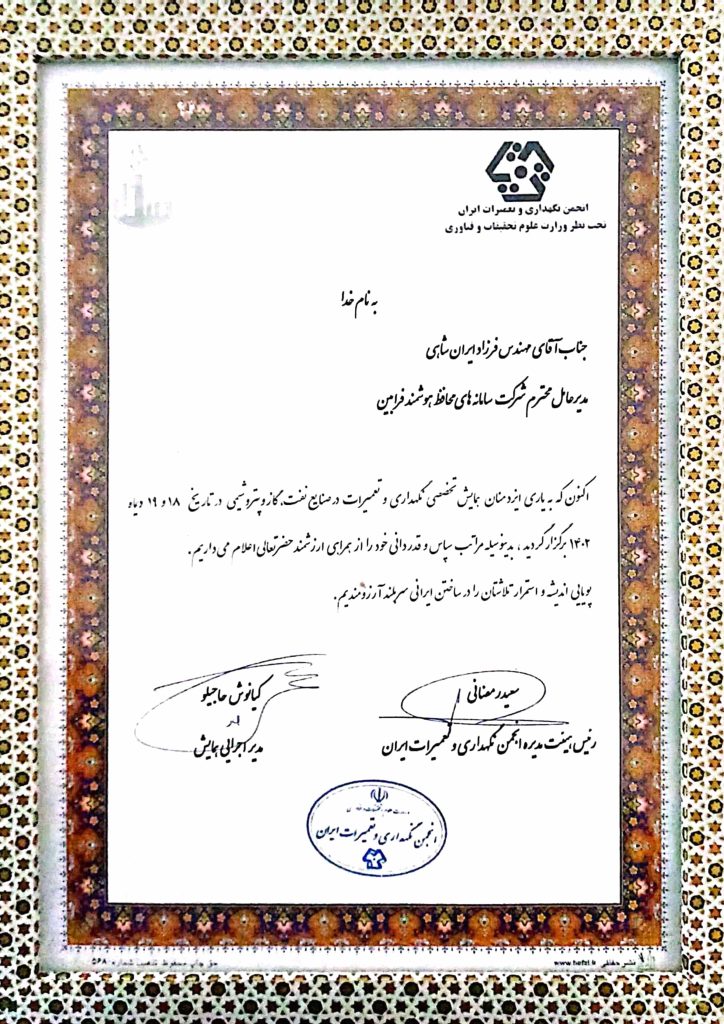 انجمن نگهداری و تعمیرات ایران
تحت نظر وزارت علوم تحقیقات و فناوری
به نام خدا
جناب آقای مهندس فرزاد ایران شاهی
مدیرعامل محترم شرکت سامانه های محافظ هوشمند فرابین
اکنون که به یاری ایزدمنان همایش تخصصی نگهداری و تعمیرات در صنایع نفت، گاز و پتروشیمی در تاریخ ۱۸ و ۱۹ دیماه
۱۴۰۲ برگزار گردید ، بدینوسیله مراتب سپاس و قدردانی خود را از همراهی ارزشمند حضرتعالی اعلام می داریم.
پویایی اندیشه و استمرار تلاشتان را در ساختن ایرانی سربلند آرزومندیم.
سعید رمضانی
رئیس هیئت مدیره انجمن نگهداری و تعمیرات ایران
کیانوش حاجیلو
مدیر اجرایی همایش
انجمن نگهداری و تعمیرات ایران
نشر حفظی www.hefzi.ir
حق چاپ محفوظ تذهیب شماره